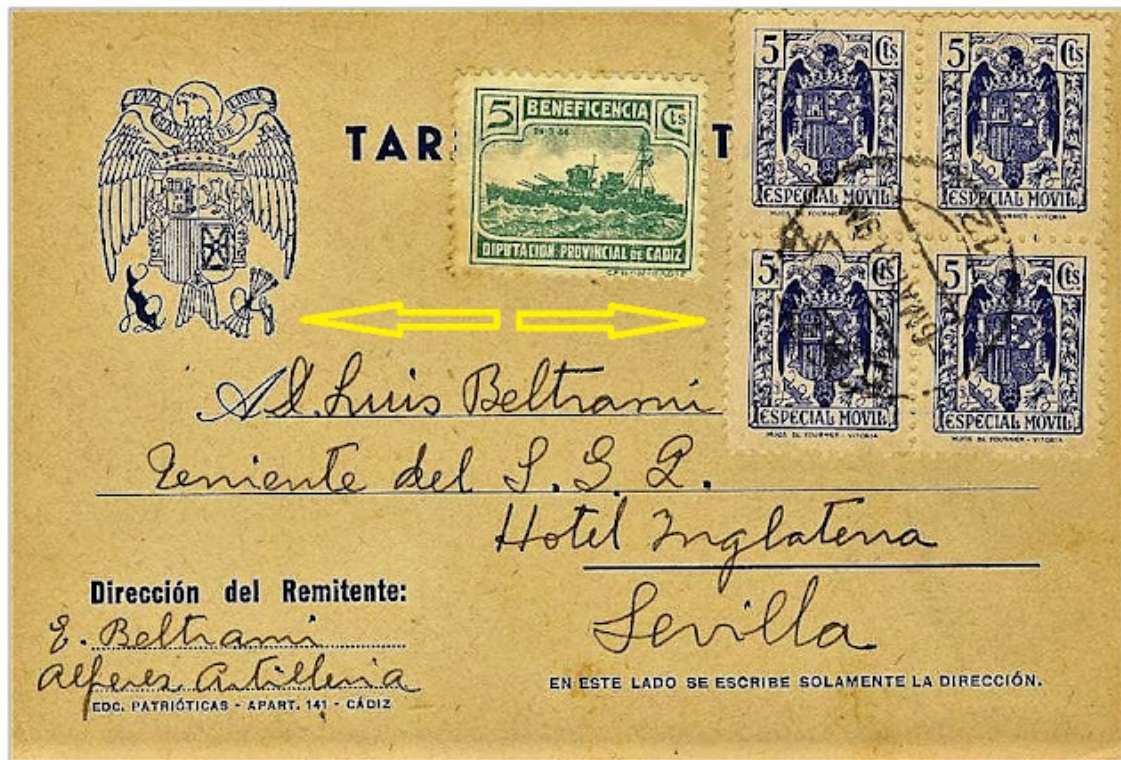 TAR T
5 BENEFICENCIA Cts
DIPUTACION PROVINCIAL DE CADIZ
5 Cts
ESPECIAL MOVIL
HIJOS DE FOURNIER - VITORIA
5 Cts
ESPECIAL MOVIL
HIJOS DE FOURNIER - VITORIA
5 Cts
ESPECIAL MOVIL
HIJOS DE FOURNIER - VITORIA
5 Cts
ESPECIAL MOVIL
HIJOS DE FOURNIER - VITORIA
Luis Beltrami
Teniente del S.
Hotel Inglaterra
Sevilla
Dirección del Remitente:
E. Beltrami
Alferez Artilleria
EDC. PATRIÓTICAS - APART. 141 - CÁDIZ
EN ESTE LADO SE ESCRIBE SOLAMENTE LA DIRECCIÓN.